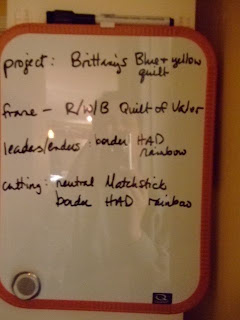 project: Brittany's Blue + yellow
quilt
frame - R/W/B Quilt of Valor
leaders/enders: border HAD
rainbow
cutting: neutral Matchstick
border HAD rainbow